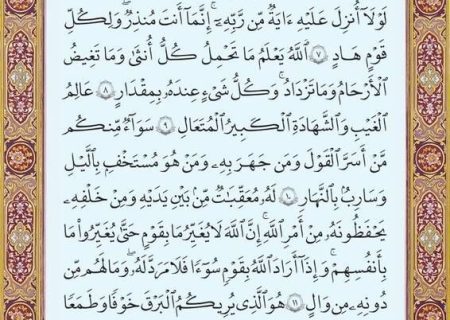 لَوْلَآ أُنزِلَ عَلَيْهِ ءَايَةٌ مِّن رَّبِّهِۦٓ ۗ إِنَّمَآ أَنتَ مُنذِرٌ ۖ وَلِكُلِّ
قَوْمٍ هَادٍ ٧ ٱللَّهُ يَعْلَمُ مَا تَحْمِلُ كُلُّ أُنثَىٰ وَمَا تَغِيضُ
ٱلْأَرْحَامُ وَمَا تَزْدَادُ ۖ وَكُلُّ شَىْءٍ عِندَهُۥ بِمِقْدَارٍ ٨ عَٰلِمُ
ٱلْغَيْبِ وَٱلشَّهَٰدَةِ ٱلْكَبِيرُ ٱلْمُتَعَالِ ٩ سَوَآءٌ مِّنكُم
مَّنْ أَسَرَّ ٱلْقَوْلَ وَمَن جَهَرَ بِهِۦ وَمَنْ هُوَ مُسْتَخْفٍۭ بِٱلَّيْلِ
وَسَارِبٌۢ بِٱلنَّهَارِ ١٠ لَهُۥ مُعَقِّبَٰتٌ مِّنۢ بَيْنِ يَدَيْهِ وَمِنْ خَلْفِهِۦ
يَحْفَظُونَهُۥ مِنْ أَمْرِ ٱللَّهِ ۗ إِنَّ ٱللَّهَ لَا يُغَيِّرُ مَا بِقَوْمٍ حَتَّىٰ يُغَيِّرُوا۟ مَا
بِأَنفُسِهِمْ ۗ وَإِذَآ أَرَادَ ٱللَّهُ بِقَوْمٍ سُوٓءًا فَلَا مَرَدَّ لَهُۥ ۚ وَمَا لَهُم مِّن
دُونِهِۦ مِن وَالٍ ١١ هُوَ ٱلَّذِى يُرِيكُمُ ٱلْبَرْقَ خَوْفًا وَطَمَعًا